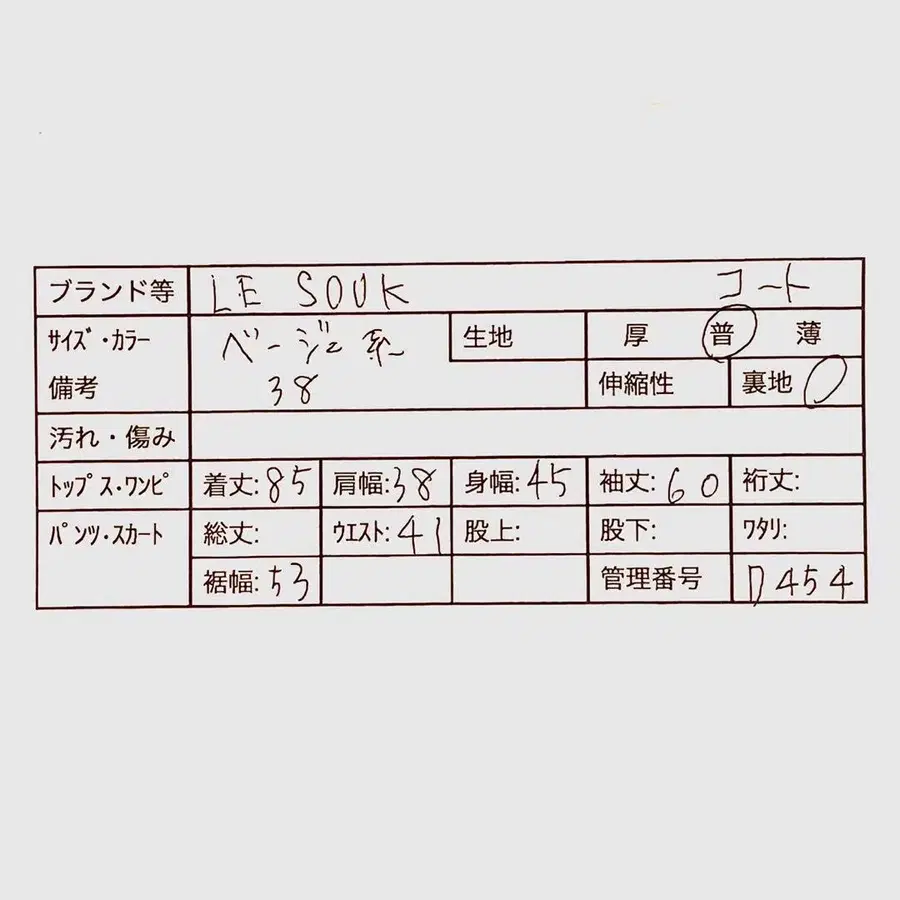 ブランド等 LE SOUK コート
サイズ・カラー ベージュ系 生地 厚 普 薄
備考 38 伸縮性 裏地 ○
汚れ・傷み
トップス・ワンピ 着丈:85 肩幅:38 身幅:45 袖丈:60 裄丈:
パンツ・スカート 総丈: ウエスト:41 股上: 股下: ワタリ:
裾幅:53 管理番号 D454